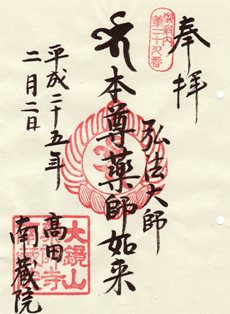 奉拝
第二十九番
弘法大師
本尊薬師如来
平成二十五年
二月二日
高田
南蔵院
大鏡山